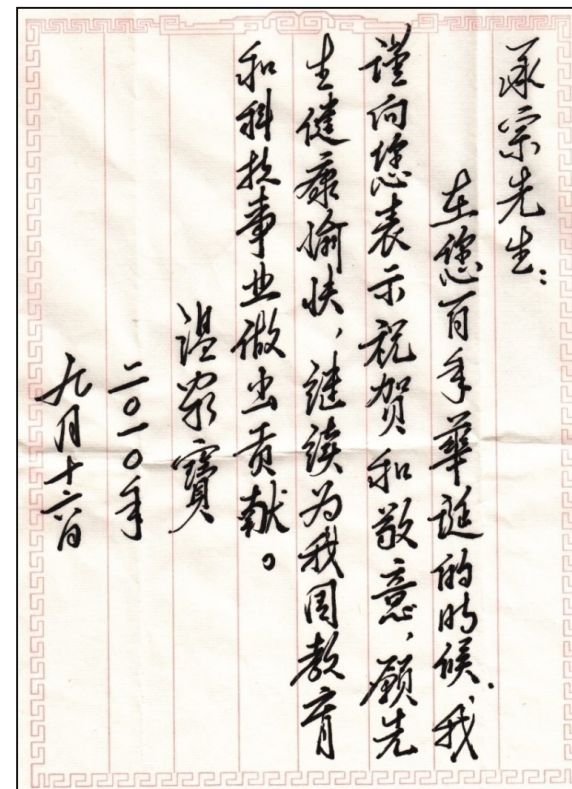 承宗先生：
在您百年華诞的時候，我
谨向您表示祝贺和敬意，願先
生健康愉快，继续为我国教育
和科技事业做出贡献。
温家寶
二〇一〇年
九月十六日